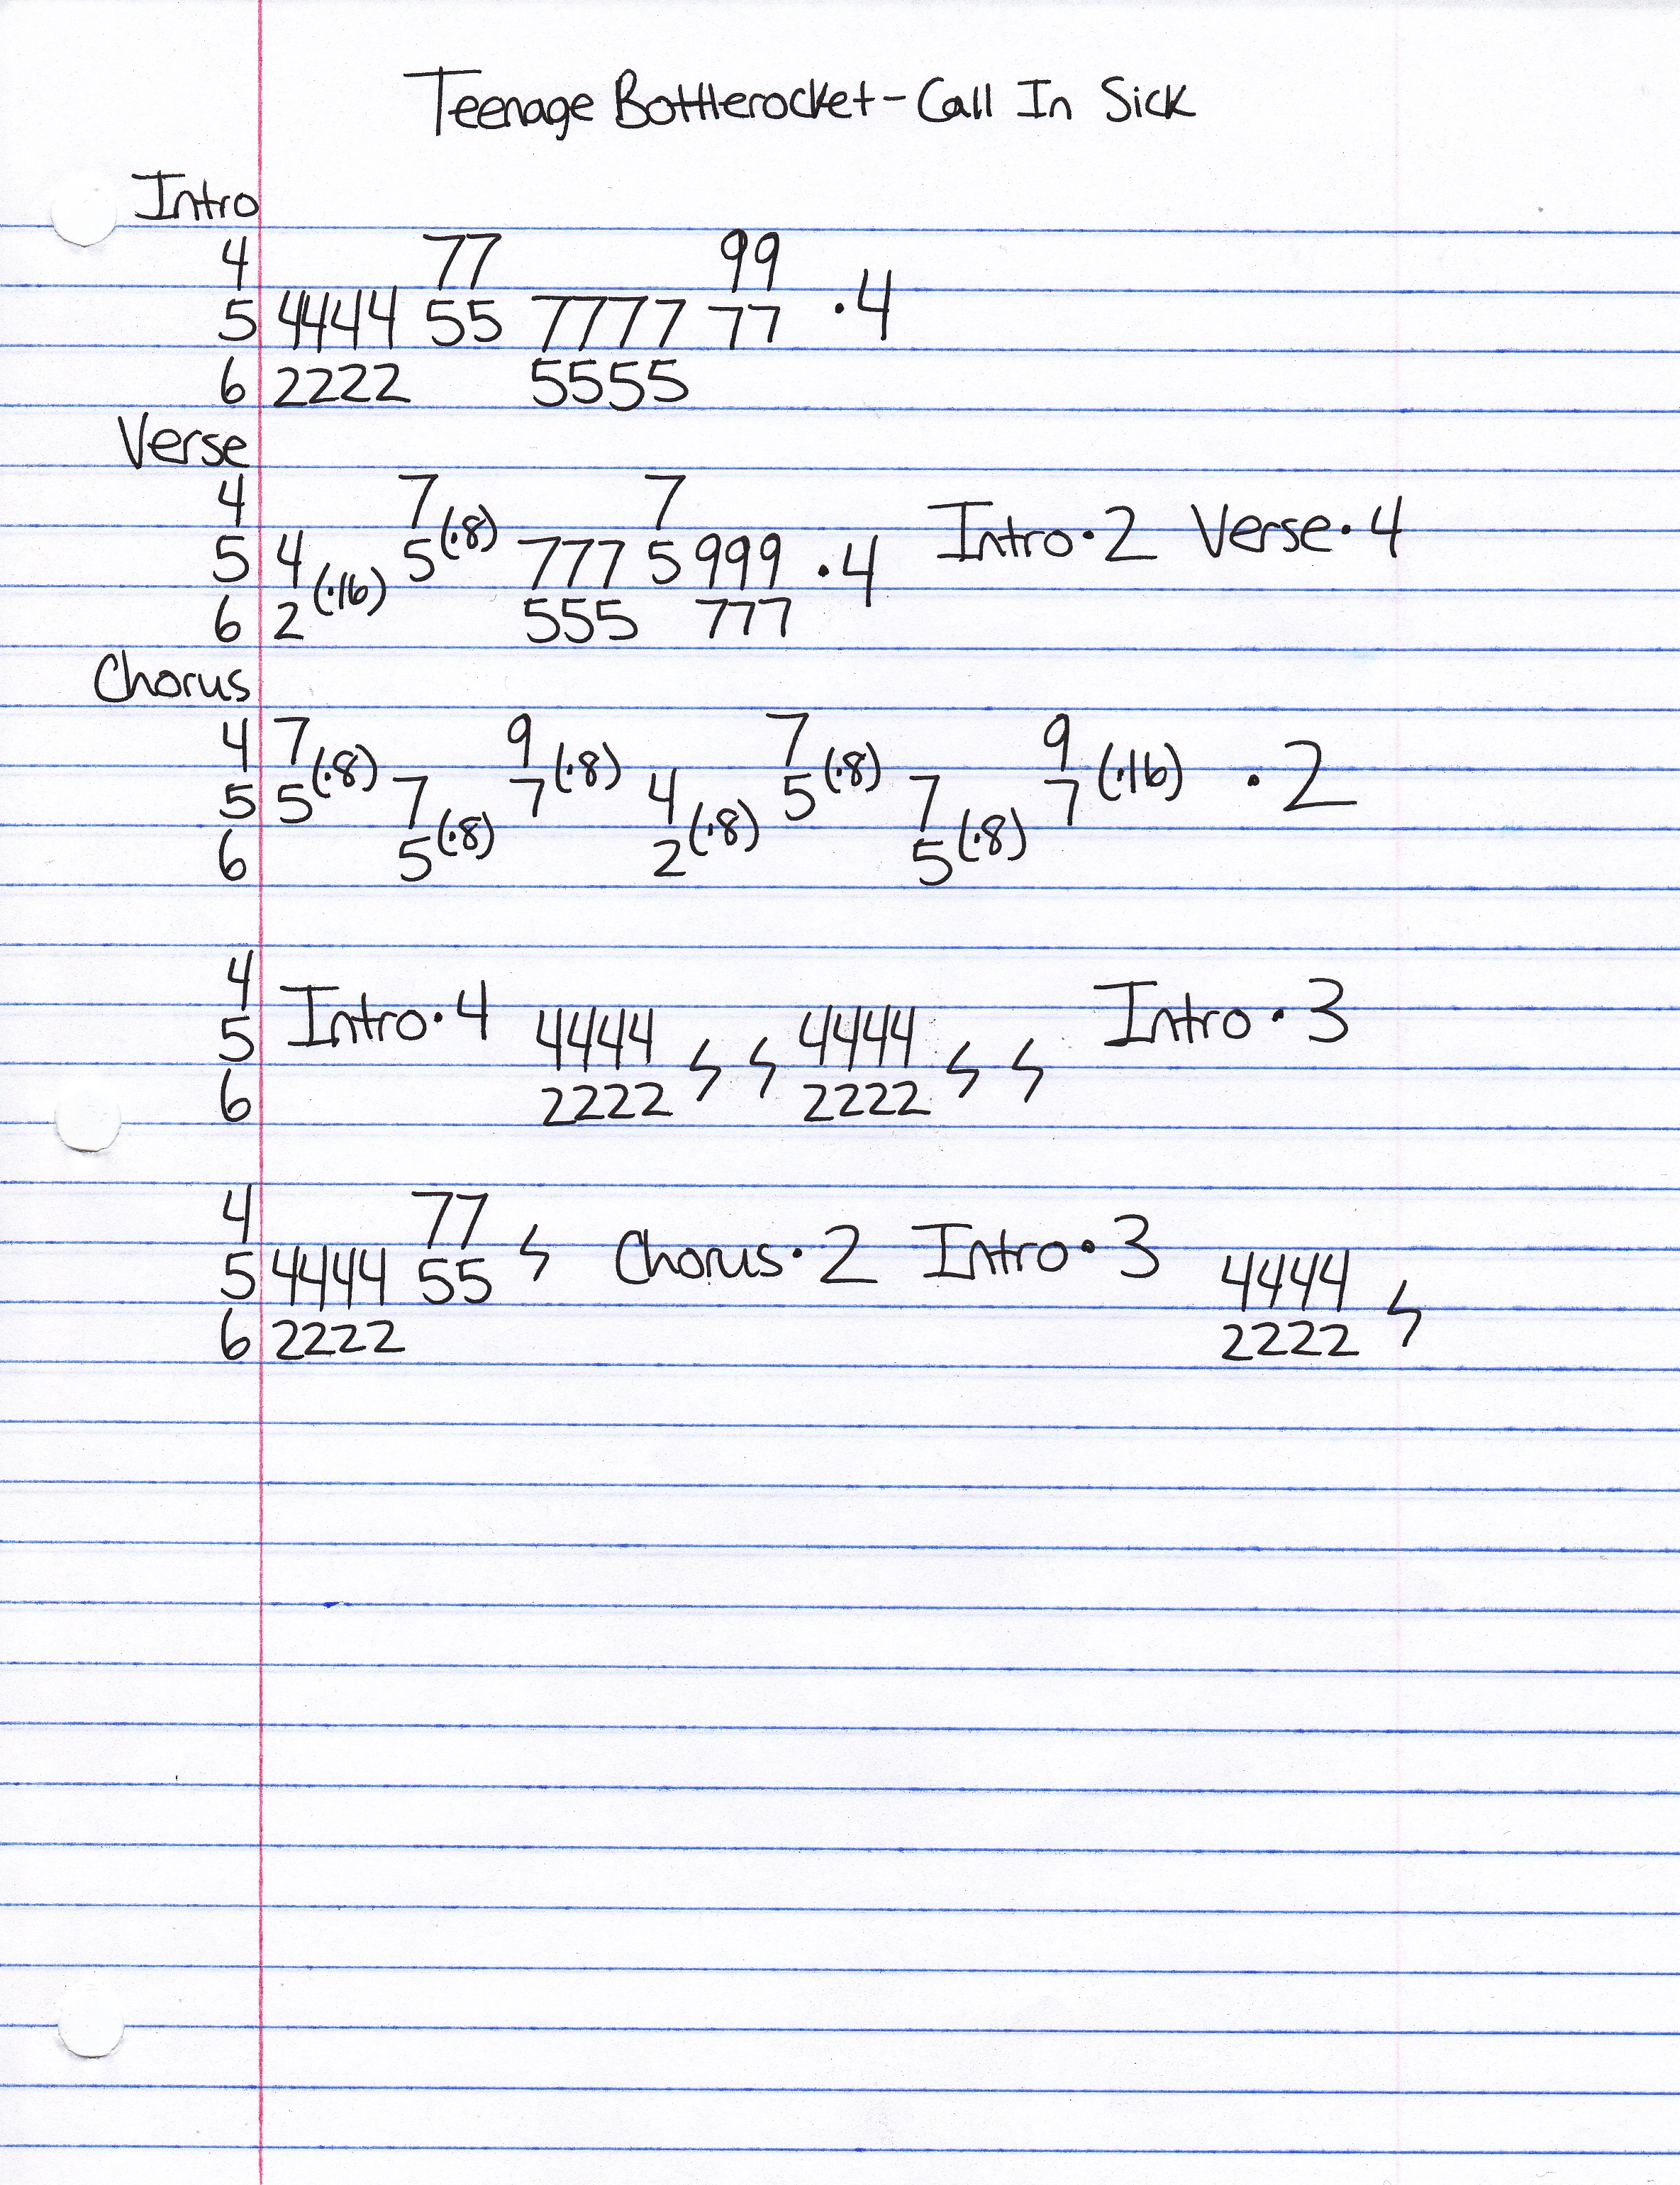 Teenage Bottlerocket - Call In Sick
Intro
4 77 99
5 4444 55 7777 77 ·4
6 2222 5555
Verse
4 7 (·8) 7
5 4 (·16) 5 777 5 999 ·4 Intro·2 Verse·4
6 2 555 777
Chorus
4 7 (·8) 9 (·8) 7 (·8) 9 (·16)
5 5 7 7 4 5 7 7 ·2
6 5 (·8) 2 (·8) 5 (·8)
4
5 Intro·4 4444 ϟ ϟ 4444 ϟ ϟ Intro·3
6 2222 2222
4 77
5 4444 55 ϟ Chorus·2 Intro·3 4444 ϟ
6 2222 2222